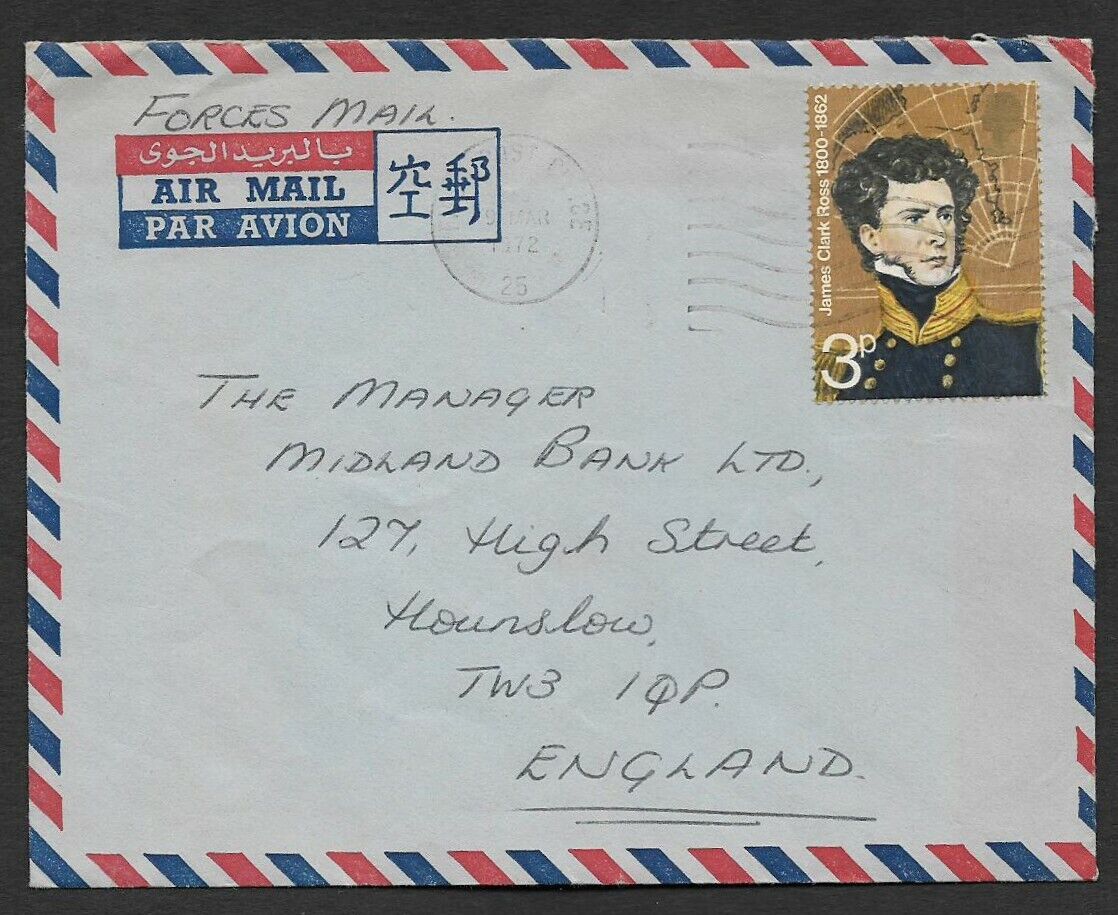 FORCES MAIL.
بالبريد الجوى
AIR MAIL
PAR AVION
空郵
MAR
1972
25
James Clark Ross 1800-1862
3p
THE MANAGER
MIDLAND BANK LTD.,
127, High Street,
Hounslow,
TW3 1QP.
ENGLAND.